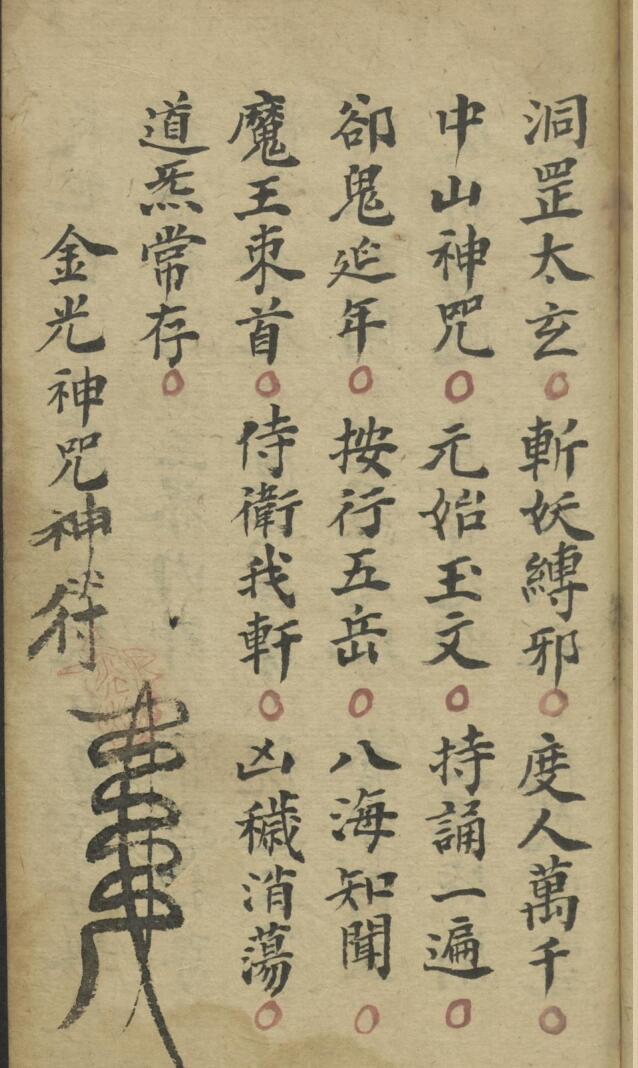 洞罡太玄○斬妖縛邪○度人萬千○
中山神咒○元始玉文○持誦一遍○
卻鬼延年○按行五岳○八海知聞○
魔王束首○侍衛我軒○凶穢消蕩○
道炁常存○
金光神咒神符